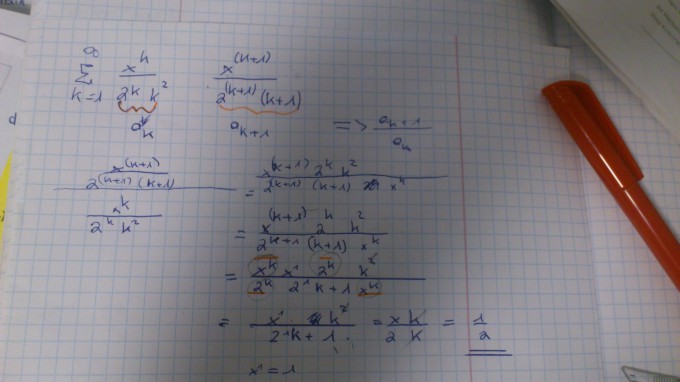 ∞
Σ x^k / 2^k k^2    x^(k+1) / 2^(k+1) (k+1)
k=1
a_k    a_k+1    => a_k+1 / a_k
x^(k+1) / 2^(k+1) (k+1) / x^k / 2^k k^2 = x^(k+1) 2^k k^2 / 2^(k+1) (k+1) x^k
= x^(k+1) 2^k k^2 / 2^k+1 (k+1) x^k
= x^k x^1 2^k k^2 / 2^k 2^1 k+1 x^k
= x^1 k^2 / 2^1 k+1 = x k / 2 k = 1 / 2
x^1 = 1